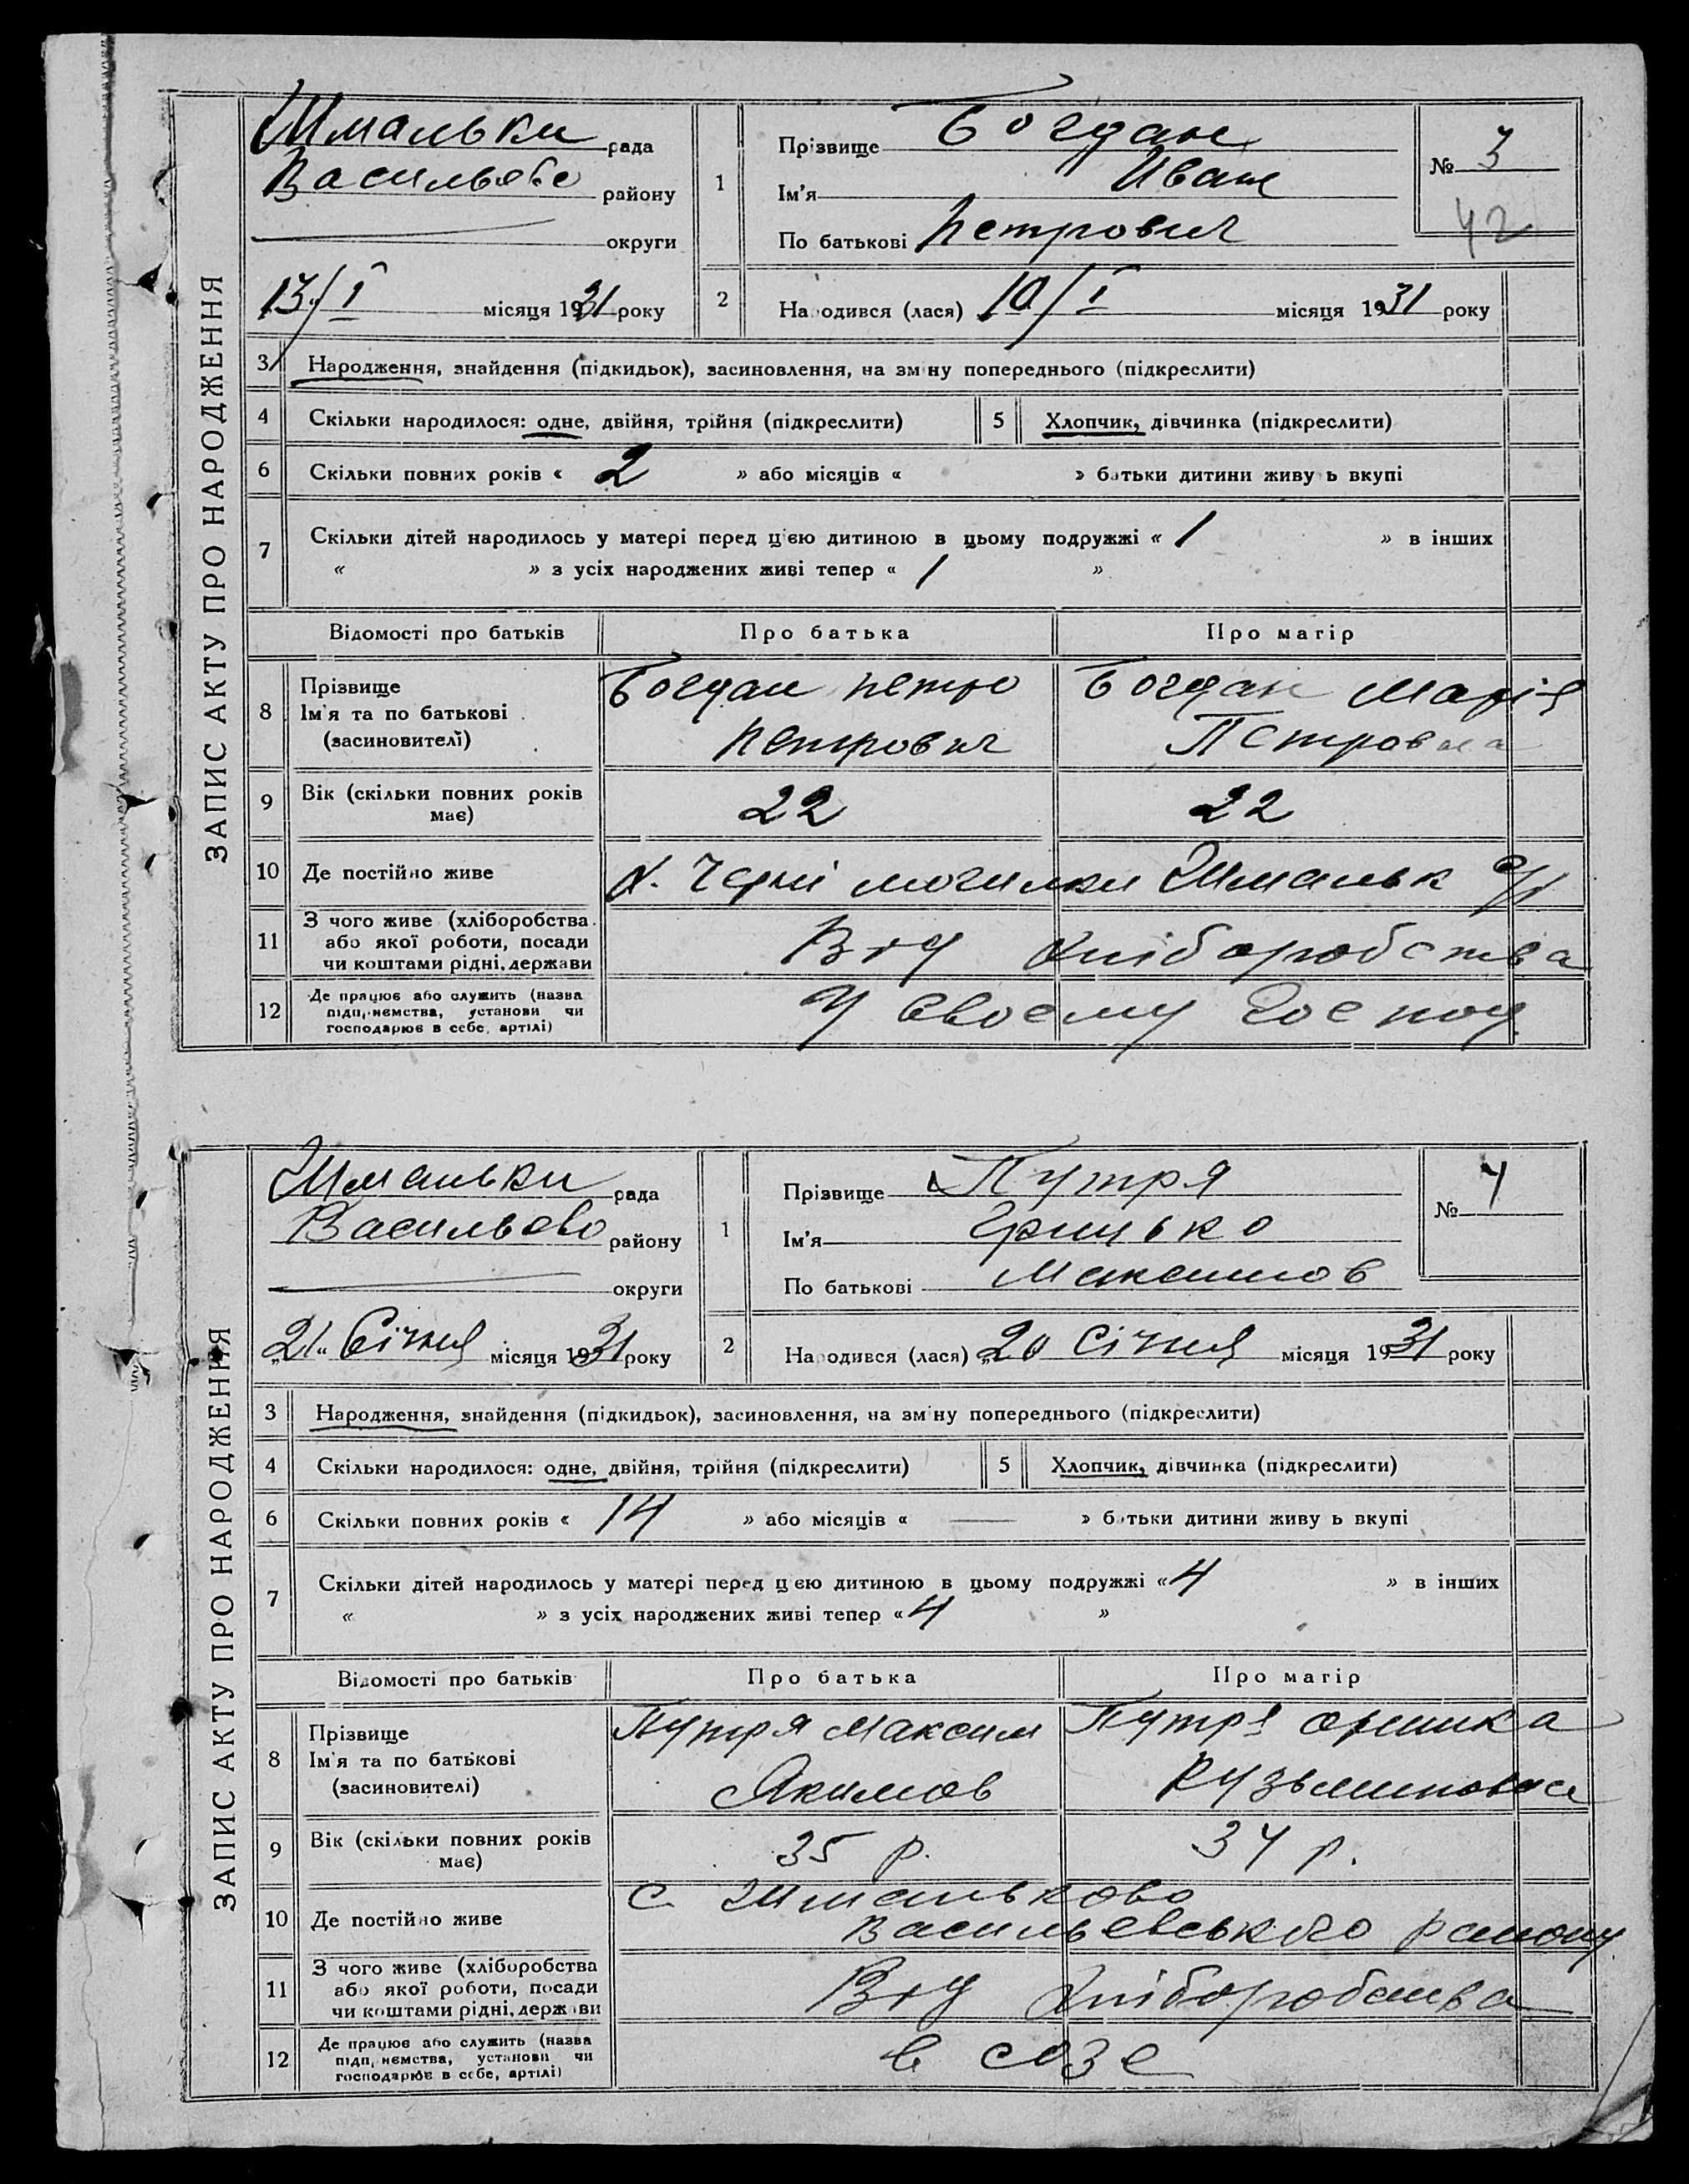 ЗАПИС АКТУ ПРО НАРОДЖЕННЯ
Шмальки рада
Васильево району
округи
13/I місяця 1931 року
1 Прізвище Богдан
Ім'я Иван
По батькові Петрович
№ 3
42
2 Народився (лася) 10/I місяця 1931 року
3 Народження, знайдення (підкидьок), засиновлення, на зміну попереднього (підкреслити)
4 Скільки народилося: одне, двійня, трійня (підкреслити) 5 Хлопчик, дівчинка (підкреслити)
6 Скільки повних років « 2 » або місяців « » батьки дитини живуть вкупі
7 Скільки дітей народилось у матері перед цією дитиною в цьому подружжі « 1 » в інших
« » з усіх народжених живі тепер « 1 »
Відомості про батьків Про батька Про матір
8 Прізвище Ім'я та по батькові (засновителі)
Богдан Петро Петрович
Богдан Марія Петровна
9 Вік (скільки повних років має) 22 22
10 Де постійно живе х. Черні могилки Шмальк с/р
11 З чого живе (хліборобства або якої роботи, посади чи коштами рідні, держави Від хліборобства
12 Де працює або служить (назва підприємства, установи чи господарює в себе, артілі) У своєму господ.
ЗАПИС АКТУ ПРО НАРОДЖЕННЯ
Шмальки рада
Васильево району
округи
„21" Січня місяця 1931 року
1 Прізвище Путря
Ім'я Грицько
По батькові Максимов
№ 4
2 Народився (лася) „20 Січня місяця 1931 року
3 Народження, знайдення (підкидьок), засиновлення, на зміну попереднього (підкреслити)
4 Скільки народилося: одне, двійня, трійня (підкреслити) 5 Хлопчик, дівчинка (підкреслити)
6 Скільки повних років « 14 » або місяців « — » батьки дитини живуть вкупі
7 Скільки дітей народилось у матері перед цією дитиною в цьому подружжі « 4 » в інших
« » з усіх народжених живі тепер « 4 »
Відомості про батьків Про батька Про матір
8 Прізвище Ім'я та по батькові (засиновителі)
Путря Максим Якимов
Путря Оришка Кузьминовна
9 Вік (скільки повних років має) 35 р. 34 р.
10 Де постійно живе с. Шмальково
Васильевського району
11 З чого живе (хліборобства або якої роботи, посади чи коштами рідні, держави Від хліборобства
12 Де працює або служить (назва підприємства, установи чи господарює в себе, артілі) в созе